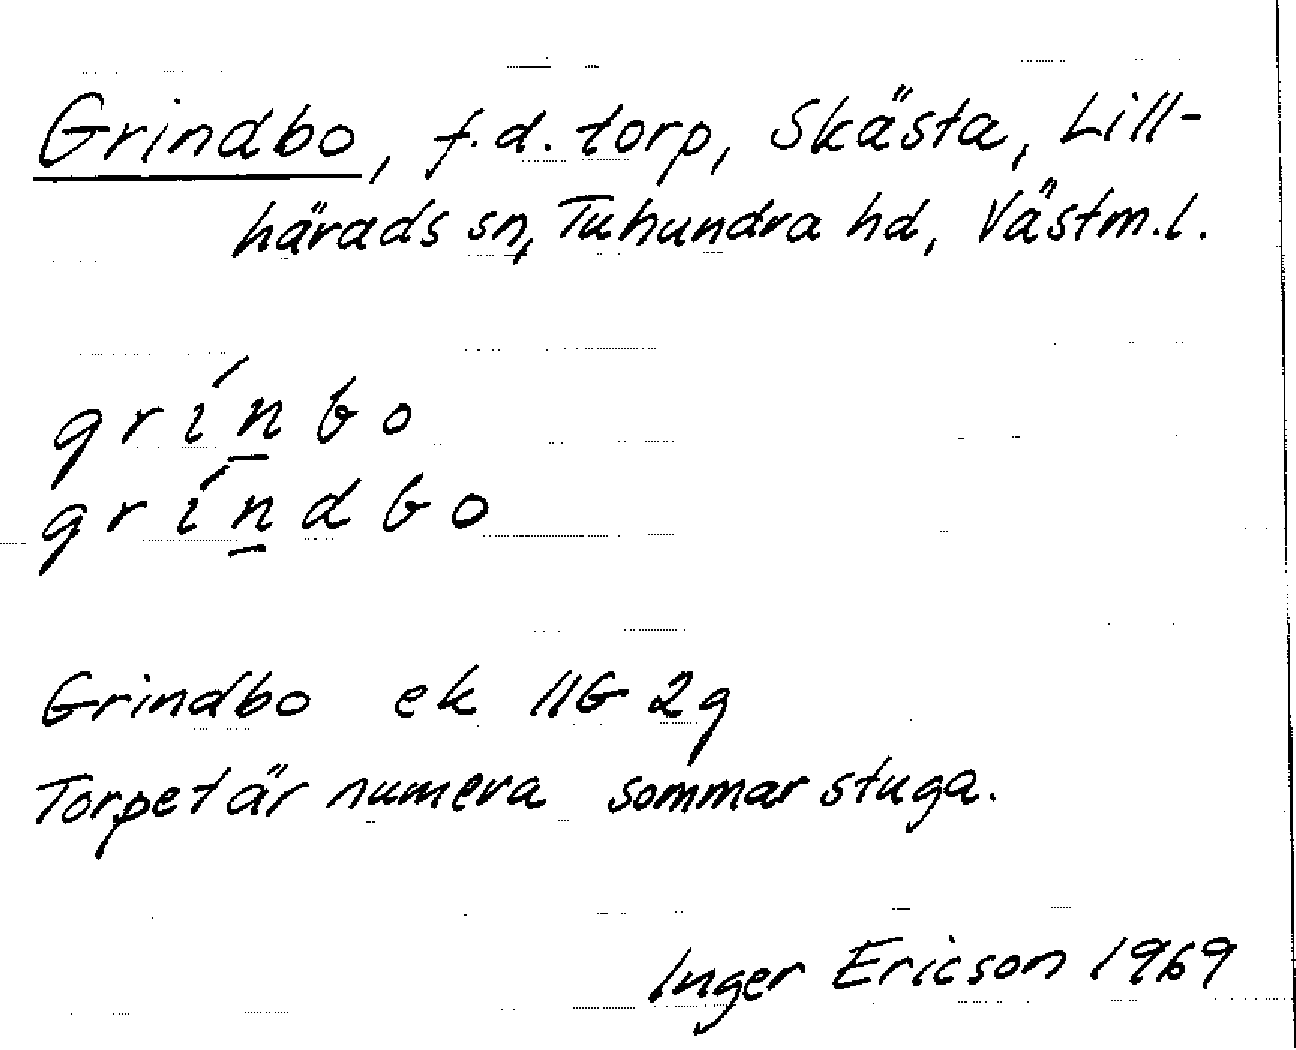 Grindbo, f.d. torp, Skästa, Lill-
härads sn, Tuhundra hd, Västm.l.
grín̲bo
grín̲dbo
Grindbo ek 11G 2g
Torpet är numera sommarstuga.
Inger Ericson 1969